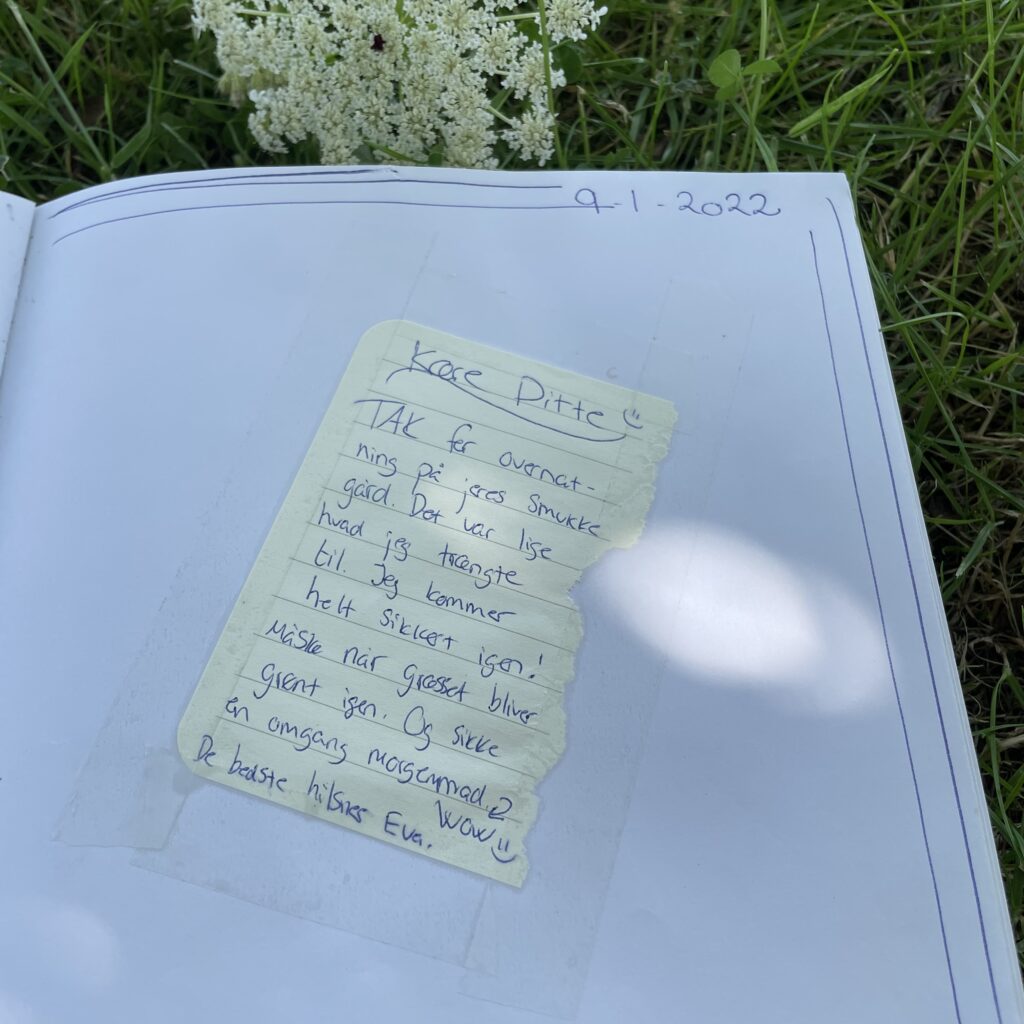 9-1-2022
Kære Ditte
TAK for overnat-
ning på jeres smukke
gård. Det var lige
hvad jeg trængte
til. Jeg kommer
helt sikkert igen!
Måske når græsset bliver
grønt igen. Og sikke
en omgang morgenmad
WOW
De bedste hilsner Eva.